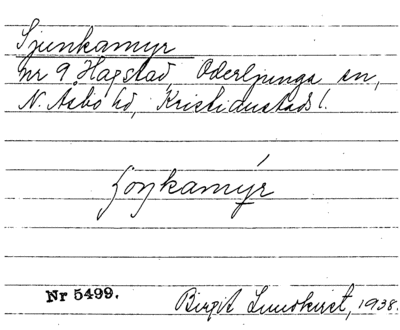 Sjunkamyr
nr 9 Hagstad, Oderljunga sn,
N. Åsbo hd, Kristianstads l.
Nr 5499.
Birgit Lundkvist, 1938.